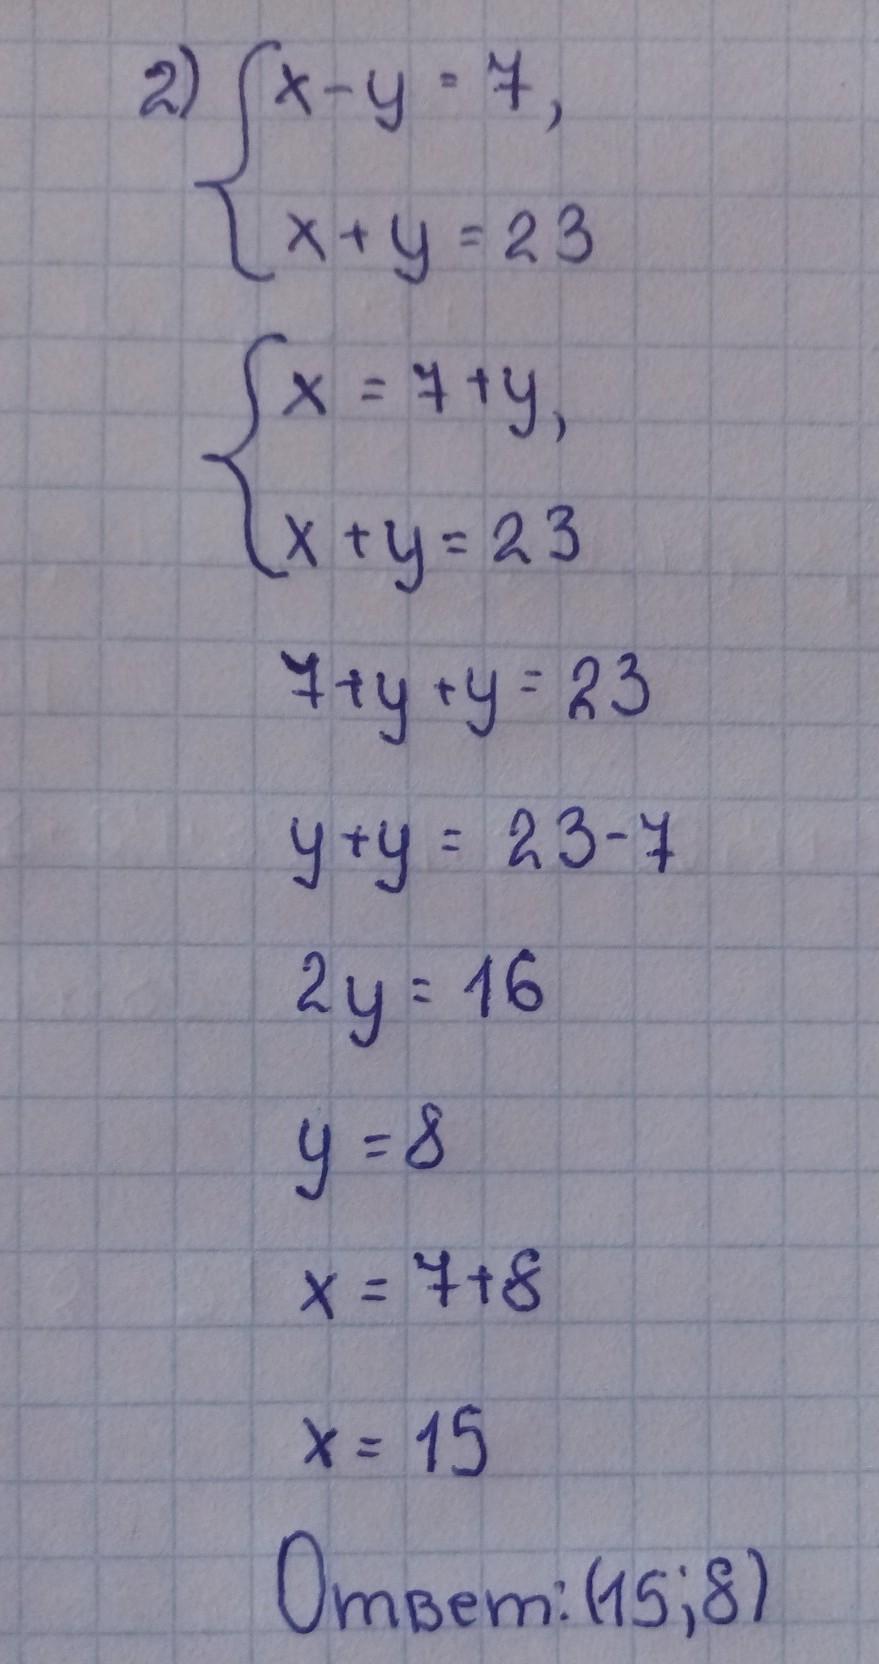 2) { x - y = 7,
x + y = 23
{ x = 7 + y,
x + y = 23
7 + y + y = 23
y + y = 23 - 7
2y = 16
y = 8
x = 7 + 8
x = 15
Ответ: (15; 8)